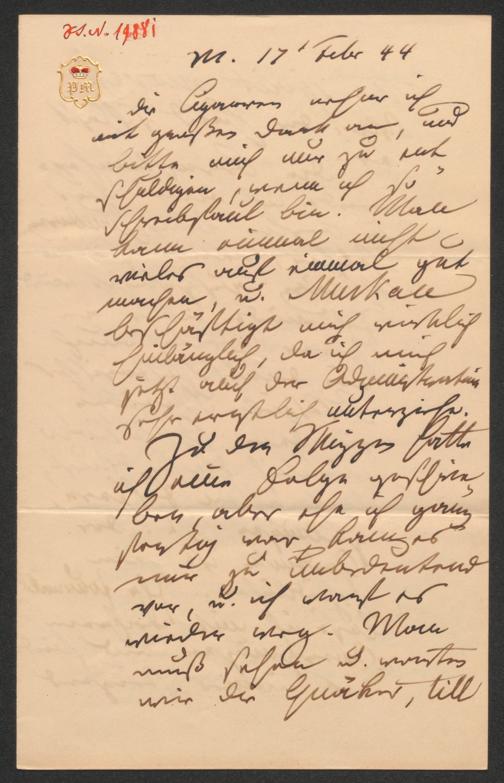 I.N. 1988i
PM
M. 17t Febr 44
die Cigarren nehme ich
mit großes Dank an, und
bitte mich nur zu ent
schuldigen, wenn ich so
schreibfaul bin. Man
kann einmal nicht
vieles auf einmal gut
machen, u. Muskau
beschäftigt mich wirklich
hinlänglich, da ich mich
jetzt auch der Administration
sehr ernstlich unterziehe.
Zu den Skizzen hatte
ich eine Folge geschrie
ben, aber ehe ich ganz
fertig war, kam es
mir zu unbedeutend
vor, u. ich warf es
wieder weg. Man
muß sehen u. warten
wie die Quäker, till